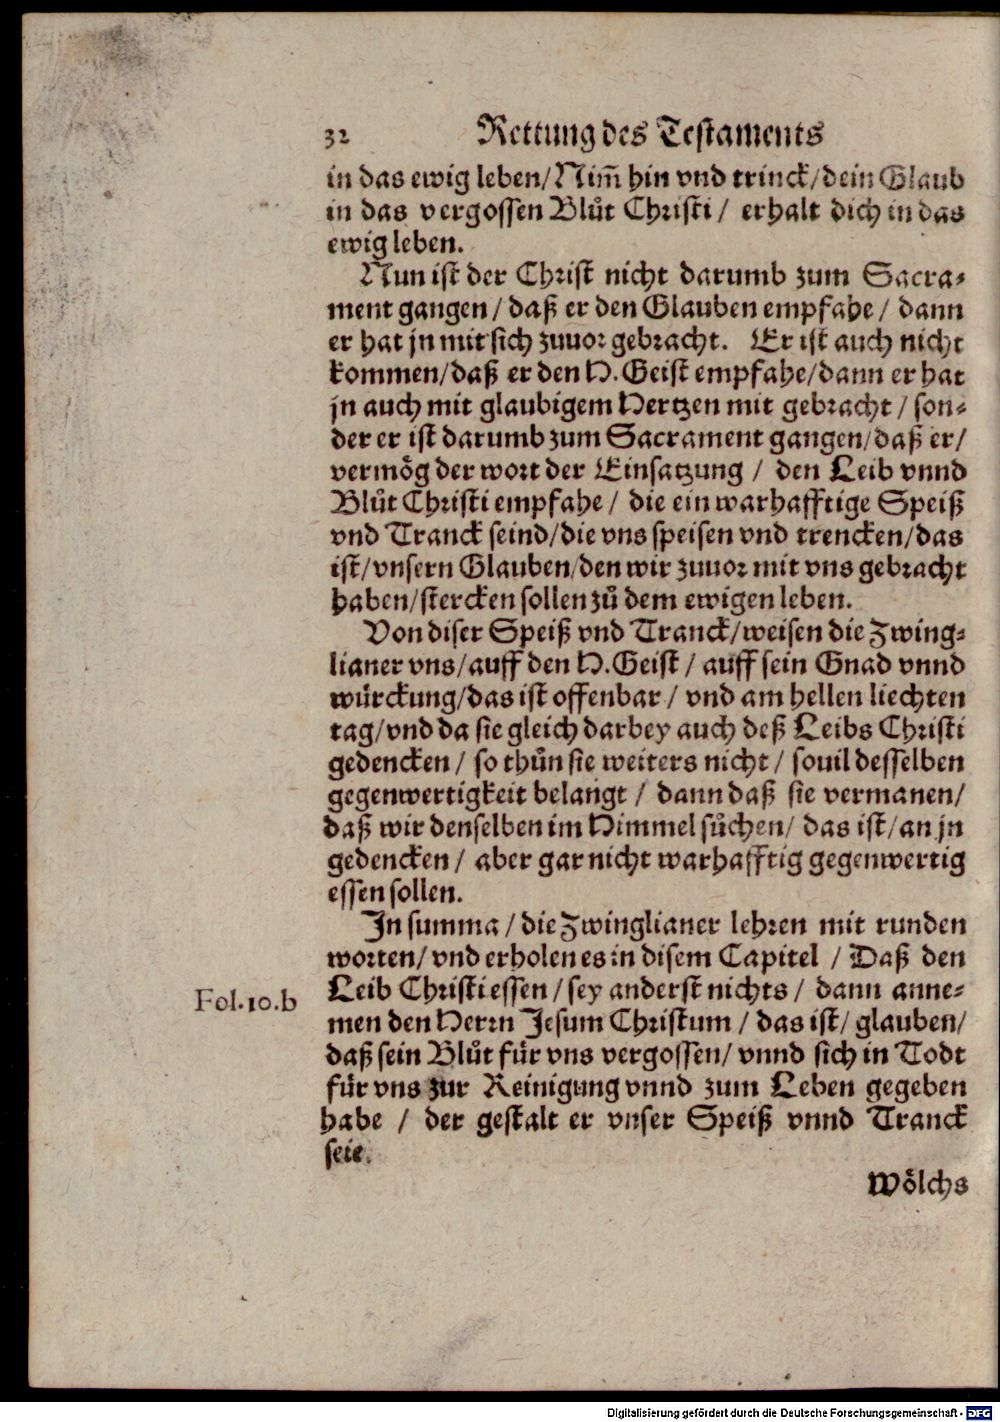 32 Rettung des Testaments
in das ewig leben/Nim̃ hin vnd trinck/dein Glaub
in das vergossen Blůt Christi / erhalt dich in das
ewig leben.
Nun ist der Christ nicht darumb zum Sacra-
ment gangen / daß er den Glauben empfahe / dann
er hat jn mit sich zuuor gebracht. Er ist auch nicht
kommen/daß er den H. Geist empfahe/dann er hat
jn auch mit glaubigem Hertzen mit gebracht / son-
der er ist darumb zum Sacrament gangen/daß er/
vermög der wort der Einsatzung / den Leib vnnd
Blůt Christi empfahe / die ein warhafftige Speiß
vnd Tranck seind/die vns speisen vnd trencken/das
ist/vnsern Glauben/den wir zuuor mit vns gebracht
haben/stercken sollen zů dem ewigen leben.
Von diser Speiß vnd Tranck/weisen die Zwing-
lianer vns/auff den H. Geist / auff sein Gnad vnnd
würckung/das ist offenbar / vnd am hellen liechten
tag/vnd da sie gleich darbey auch deß Leibs Christi
gedencken / so thůn sie weiters nicht / souil desselben
gegenwertigkeit belangt / dann daß sie vermanen/
daß wir denselben im Himmel sůchen/ das ist/an jn
gedencken / aber gar nicht warhafftig gegenwertig
essen sollen.
In summa / die Zwinglianer lehren mit runden
worten/ vnd erholen es in disem Capitel / Daß den
Fol. 10. b
Leib Christi essen / sey anderst nichts / dann anne-
men den Herrn Jesum Christum / das ist/ glauben/
daß sein Blůt für vns vergossen/ vnnd sich in Todt
für vns zur Reinigung vnnd zum Leben gegeben
habe / der gestalt er vnser Speiß vnnd Tranck
seie.
Wölchs
Digitalisierung gefördert durch die Deutsche Forschungsgemeinschaft - DFG